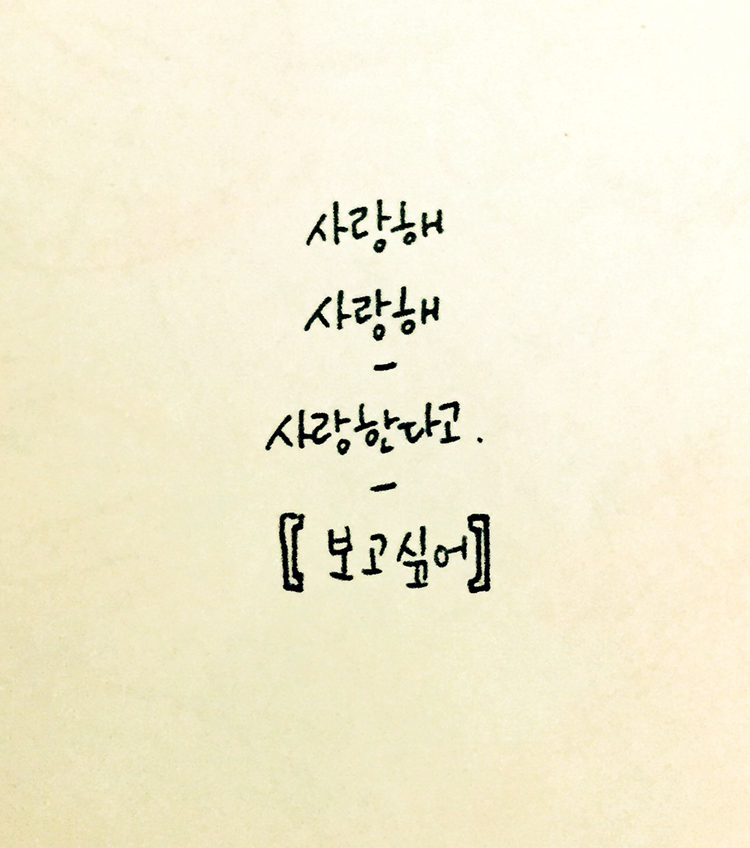 사랑해
사랑해
-
사랑한다고.
-
〖 보고싶어 〗